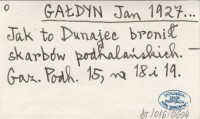 o
GAŁDYN Jan 1927...
Jak to Dunajec bronił
skarbów podhalańskich.
Gaz. Podh. 15, nr 18 i 19.